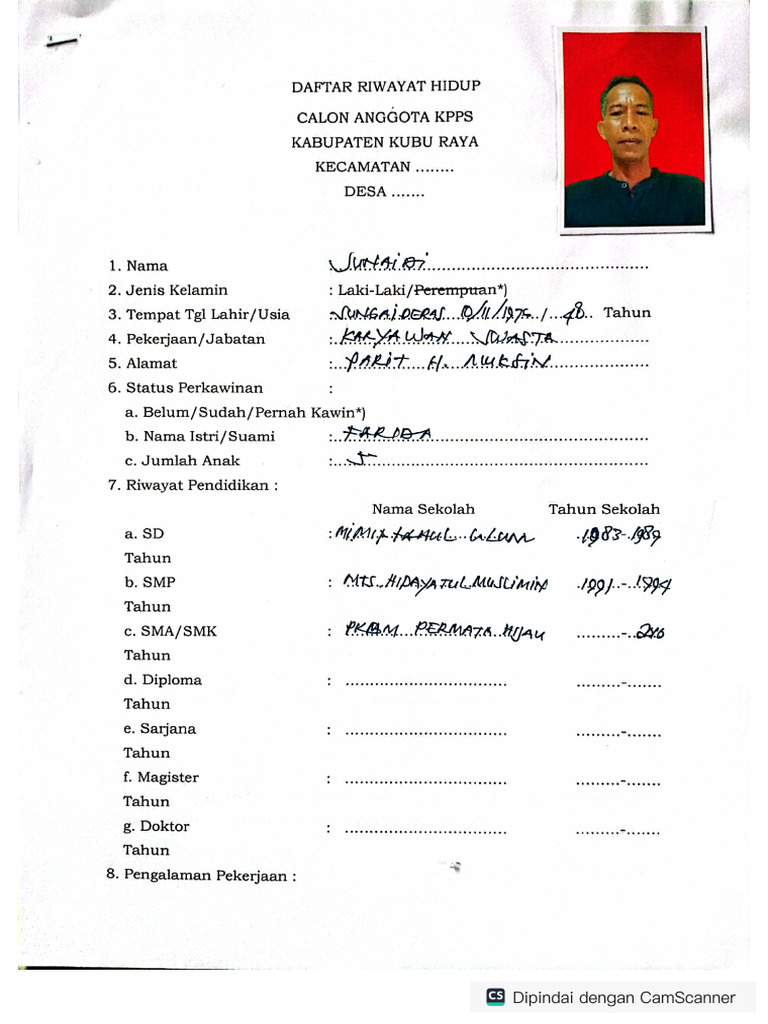 DAFTAR RIWAYAT HIDUP
CALON ANGGOTA KPPS
KABUPATEN KUBU RAYA
KECAMATAN ........
DESA .......
1. Nama JUNAIDI
2. Jenis Kelamin : Laki-Laki/Perempuan*)
3. Tempat Tgl Lahir/Usia : SUNGAI DERAS / 48 Tahun
4. Pekerjaan/Jabatan : KARYAWAN SWASTA
5. Alamat : PARIT H. MUKSIN
6. Status Perkawinan :
a. Belum/Sudah/Pernah Kawin*)
b. Nama Istri/Suami : FARIDA
c. Jumlah Anak : 5
7. Riwayat Pendidikan :
Nama Sekolah Tahun Sekolah
a. SD : ULUM 1983-1989
Tahun
b. SMP : MTS HIDAYATUL MUSLIMIN 1991 - 1994
Tahun
c. SMA/SMK : PKBM PERMATA HIJAU .........-
Tahun
d. Diploma : ................................. .........-.......
Tahun
e. Sarjana : ................................. .........-.......
Tahun
f. Magister : ................................. .........-.......
Tahun
g. Doktor : ................................. .........-.......
Tahun
8. Pengalaman Pekerjaan :
CS Dipindai dengan CamScanner